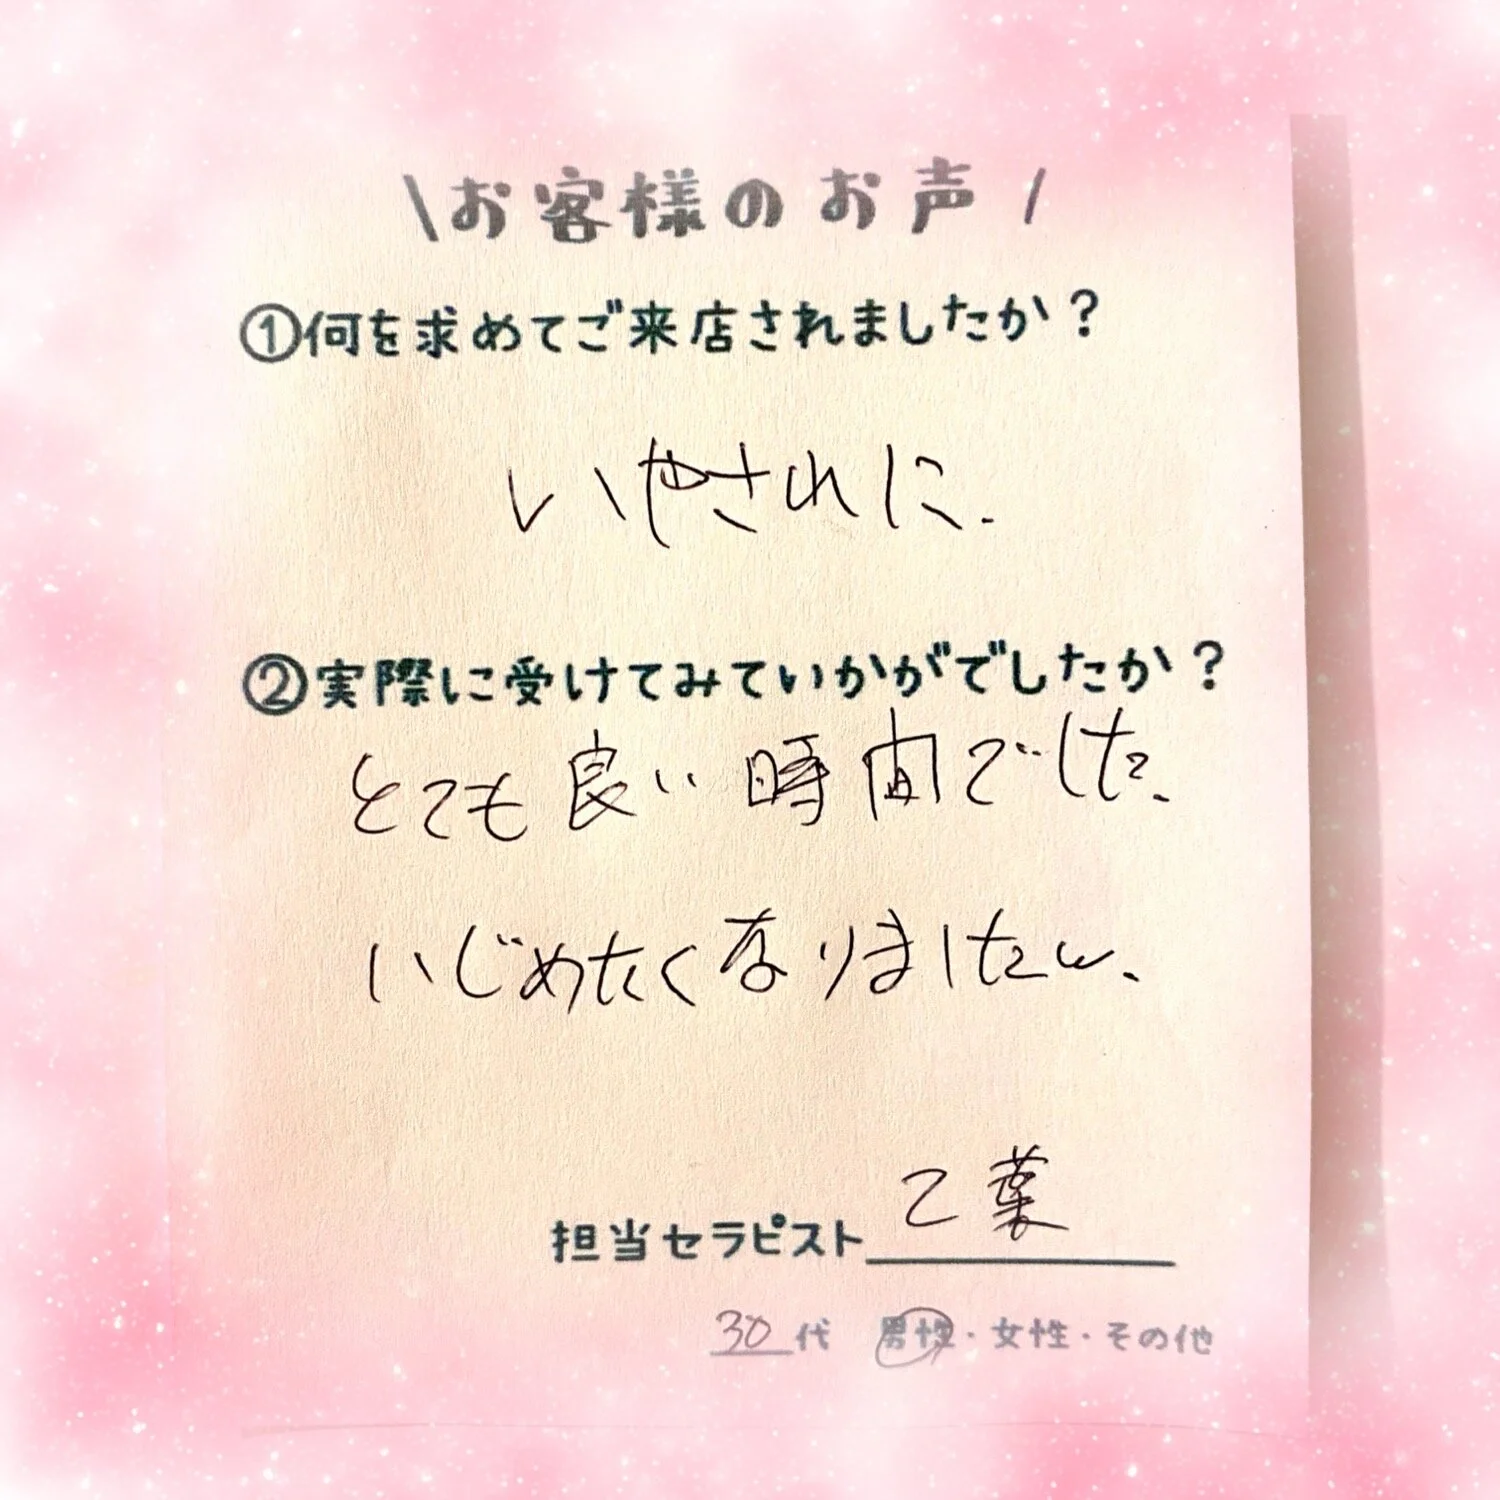 \お客様のお声/
①何を求めてご来店されましたか？
いやされに.
②実際に受けてみていかがでしたか？
とても良い時間でした.
いじめたくなりましたw.
担当セラピスト 乙葉
30代 男性・女性・その他